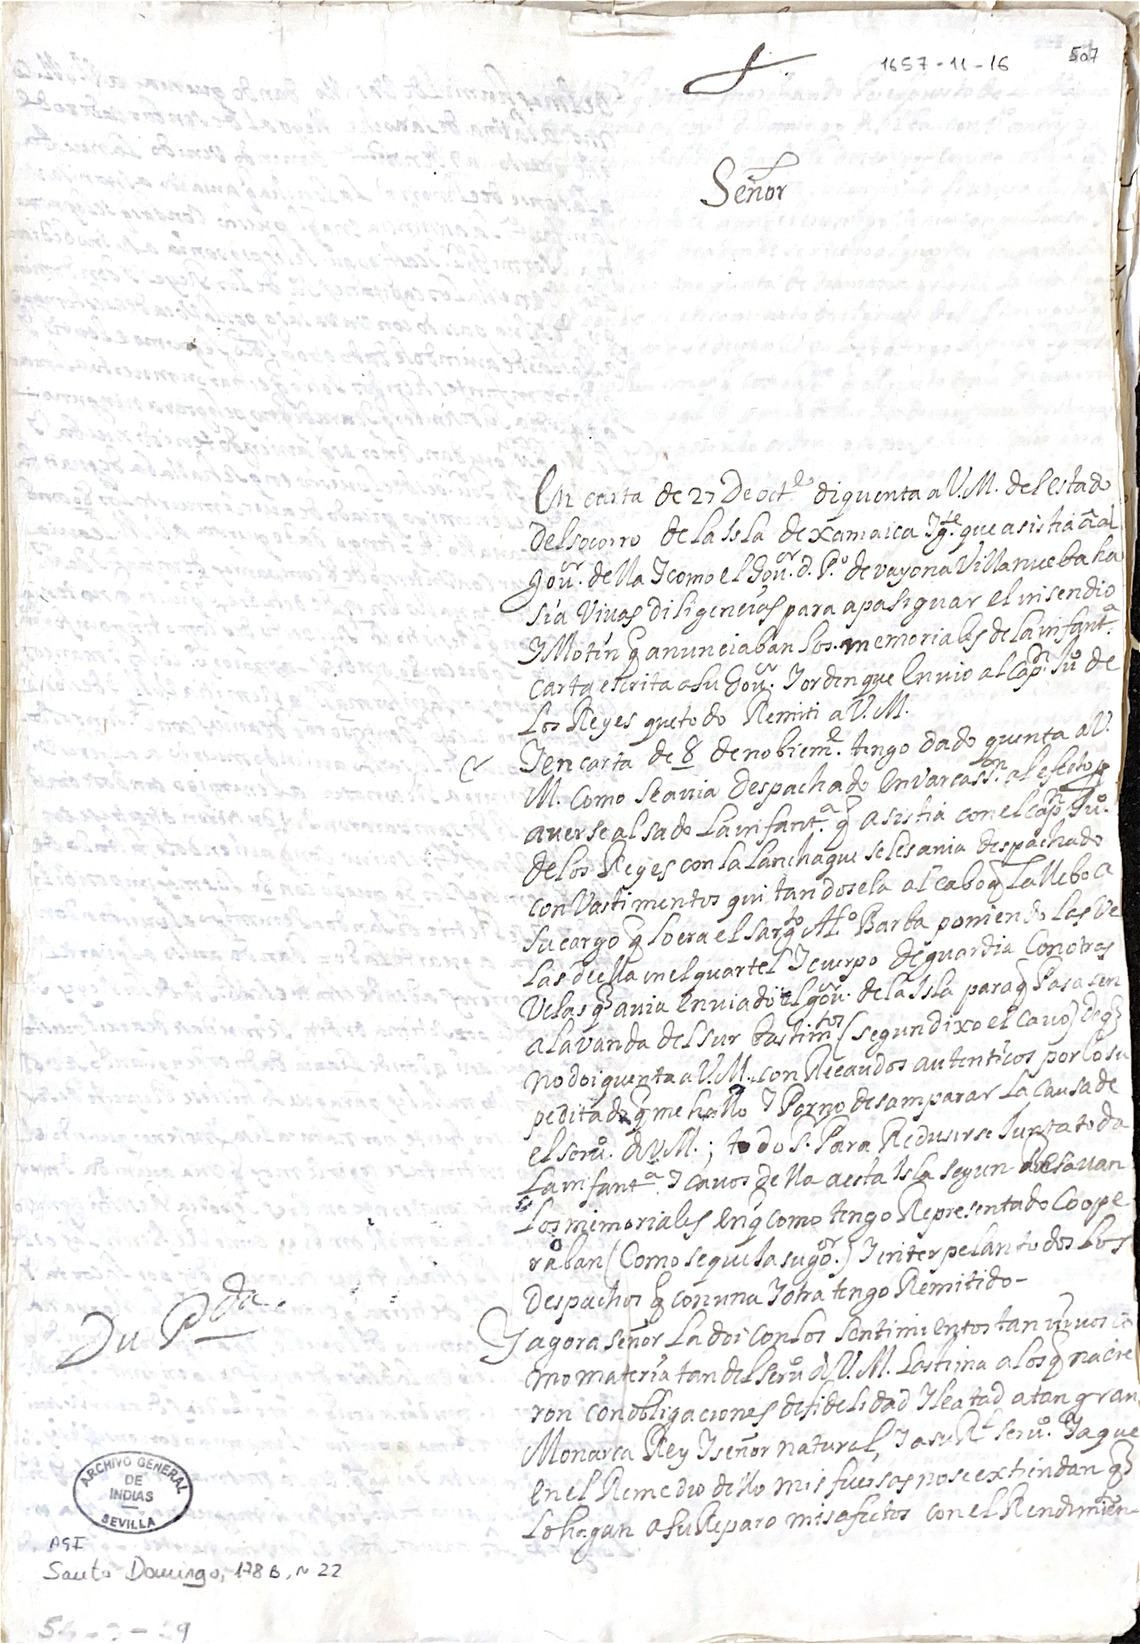 1657-11-16
507
Señor
En carta de 27 De oct.e di quenta a V.M. del estado
del socorro de la Isla de xamaica I g.te que asistia al
gou.or della I como el gou.or d. P.o de vayona Villanueba ha
sia Vivas diligencias para apasiguar el insendio
I Motin q anunciaban los memoriales de la infant.a
carta escrita a su gou.or I orden que Envio al Cap.n Ju.o de
Los Reyes que todo Remiti a V.M.
I en carta de 8 de nobiem.e tengo dado quenta a V.
M. como se avia Despachado Envarcass.n al efecto
averse alsado La infant.a q asistia con el cap.n Ju.o
de los Reyes con la Lancha que se les avia despachado
con Vastimentos quitandosela al cabo q La llebo a
su cargo q lo era el sarg.to Al.o Barba poniendo las Ve
las de ella en el quartel I cuerpo de guardia Con otras
Velas q avia Enviado el gou.or de la Isla para q Pasasen
a la vanda del sur bastim.tos (segun dixo el cavo) de q
no doi quenta a V.M. con Recaudos autenticos por lo su
peditado q me hallo I Por no desamparar La causa de
el seru.o d V.M.; todo S. Para Redusirse Junta toda
La infant.a I cavos de lla a esta Isla segun
Los mimoriales En q como tengo Representado Coope
raban (Como se quila su go.or) I interpelan todos Los
Despachos q con una I otra tengo Remitido-
I agora señor La doi con los sentimientos tan vivos co
mo materia tan del seru.o d V.M. Lastima a los q nacie
ron con obligaciones de fidelidad I leatad a tan gran
Monarca Rey I señor natural, I a su R.l seru.o. Ia que
En el Remedio dello mis fuersas no se extiendan q
Lo hagan a su Reparo mis afectos con el Rendimien
Du P.da
ARCHIVO GENERAL
DE
INDIAS
SEVILLA
AGI
Santo Domingo, 178 B, n 22